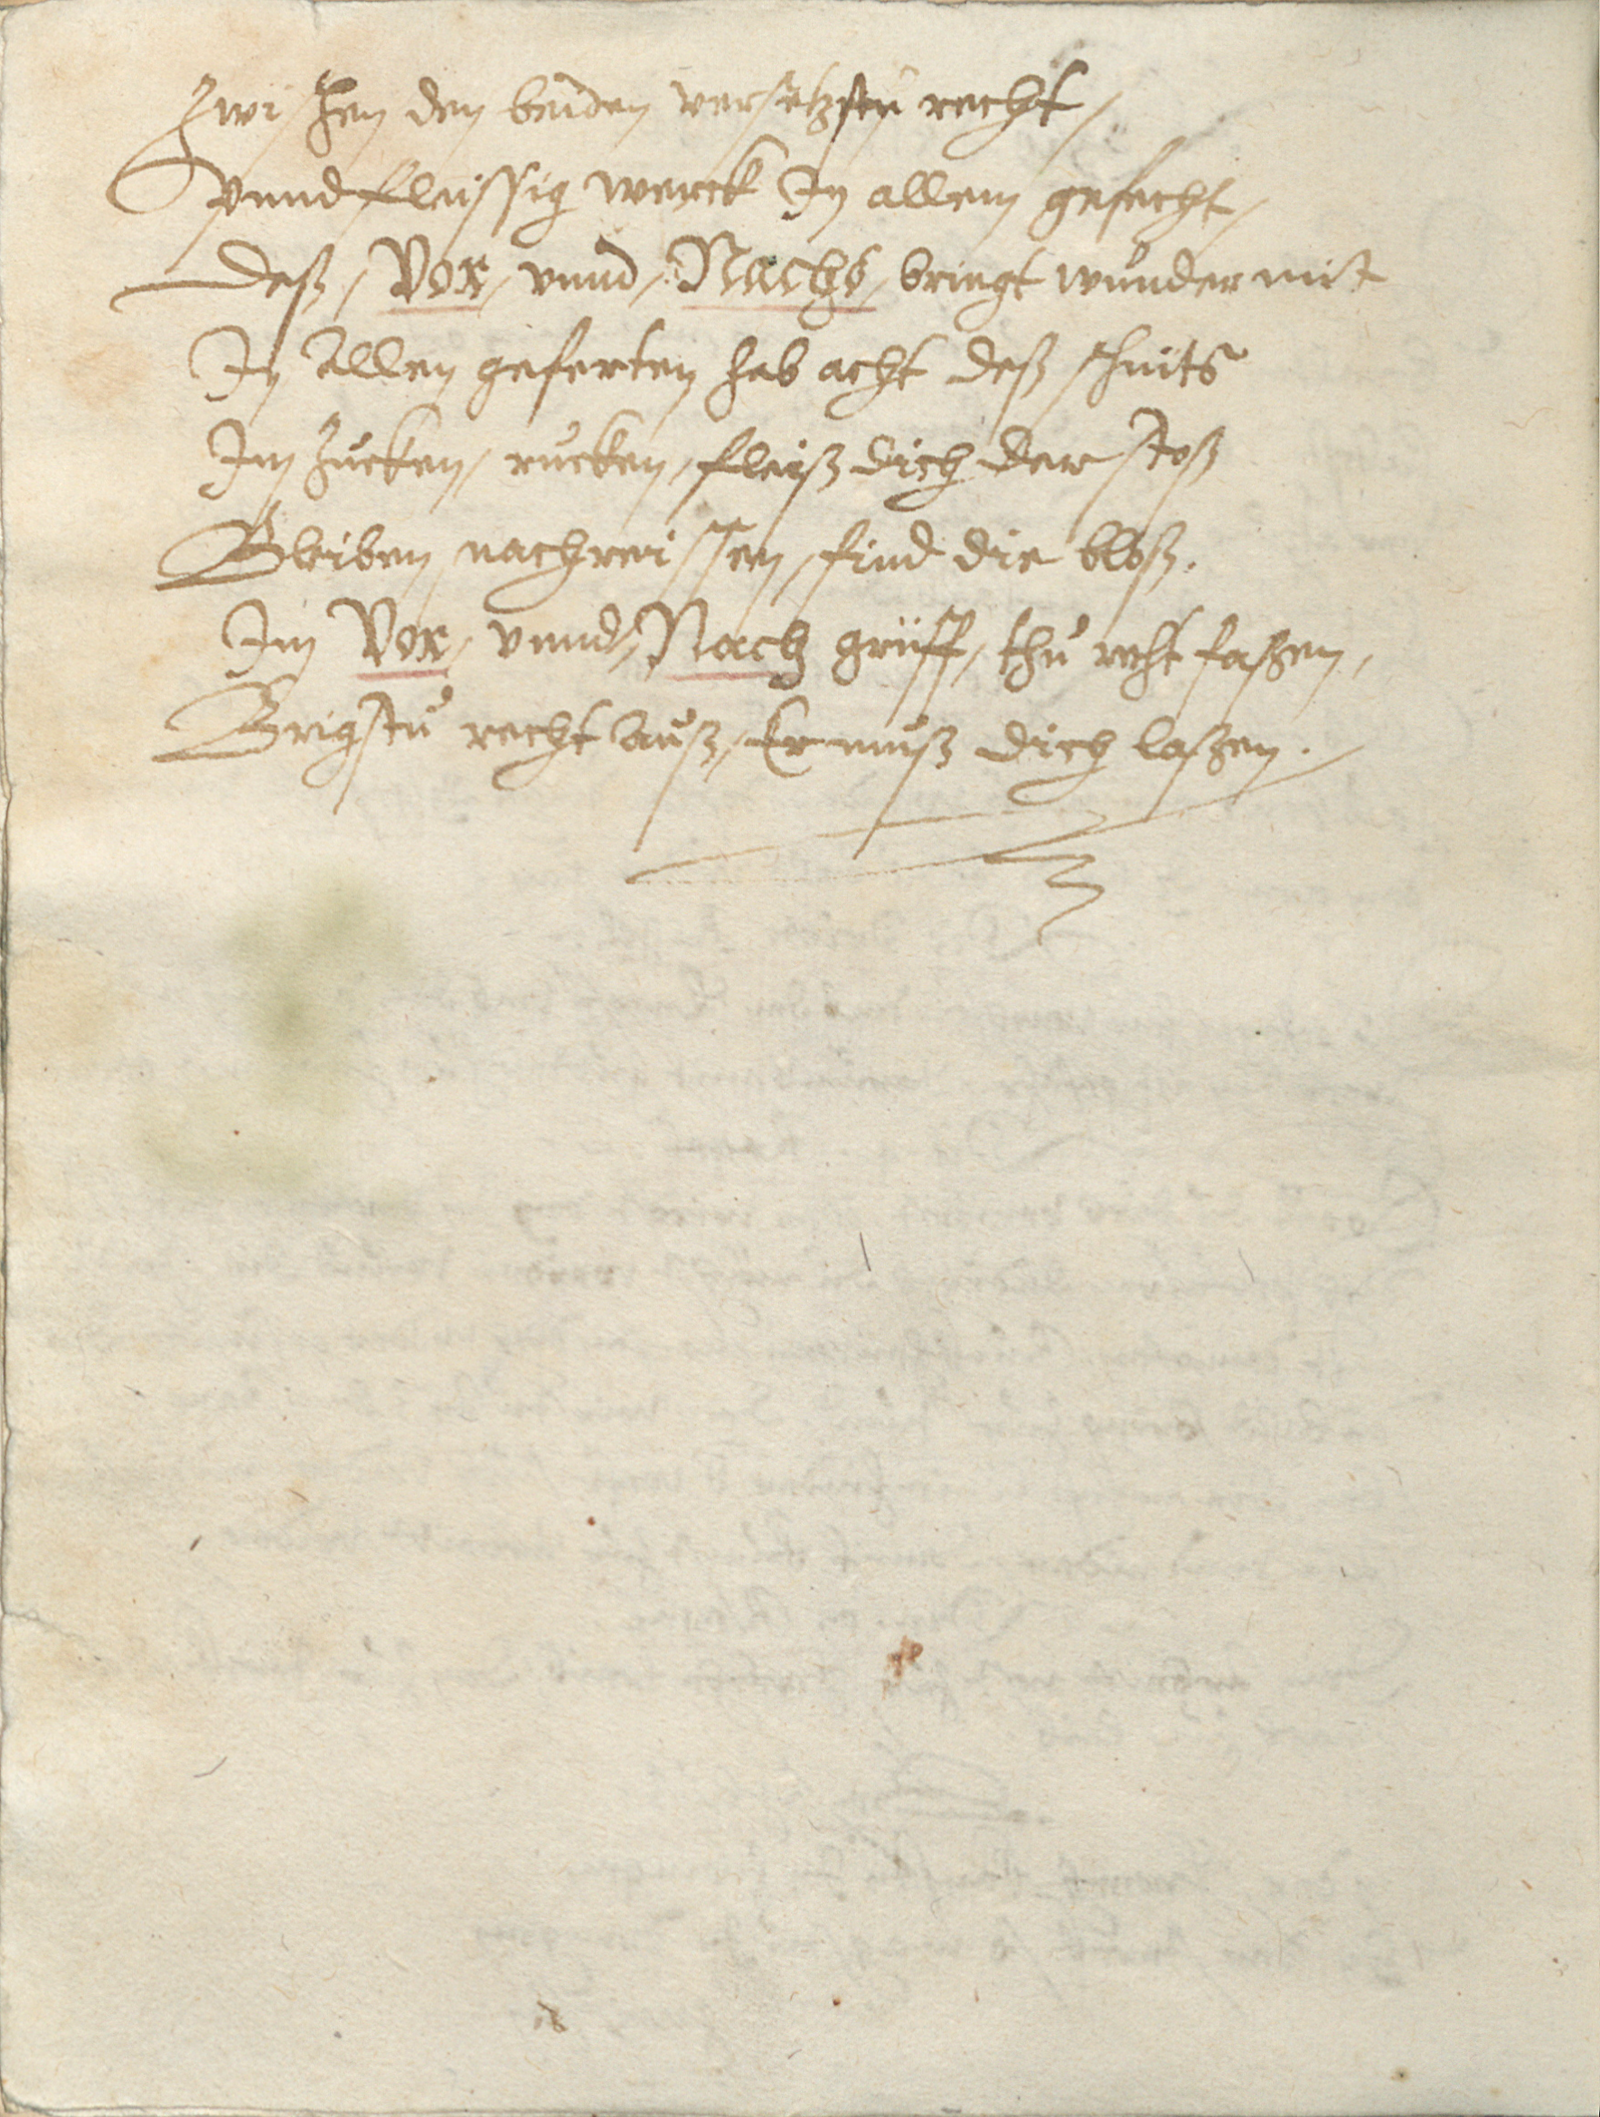 Zwischen den beiden versetzstu recht,
vnnd fleissig werck In allem gefecht,
Deß, Vor, vnnd, Nachs, bringt wunder mit
In Allen geferten hab acht deß schnits
Im Zucken, rucken, fleiß dich der stoß
Bleiben, nachreissen, find die bloß.
Im Vor, vnnd, Nach griff, thu recht faßen,
Brigstu recht auß, Er muß dich laßen.